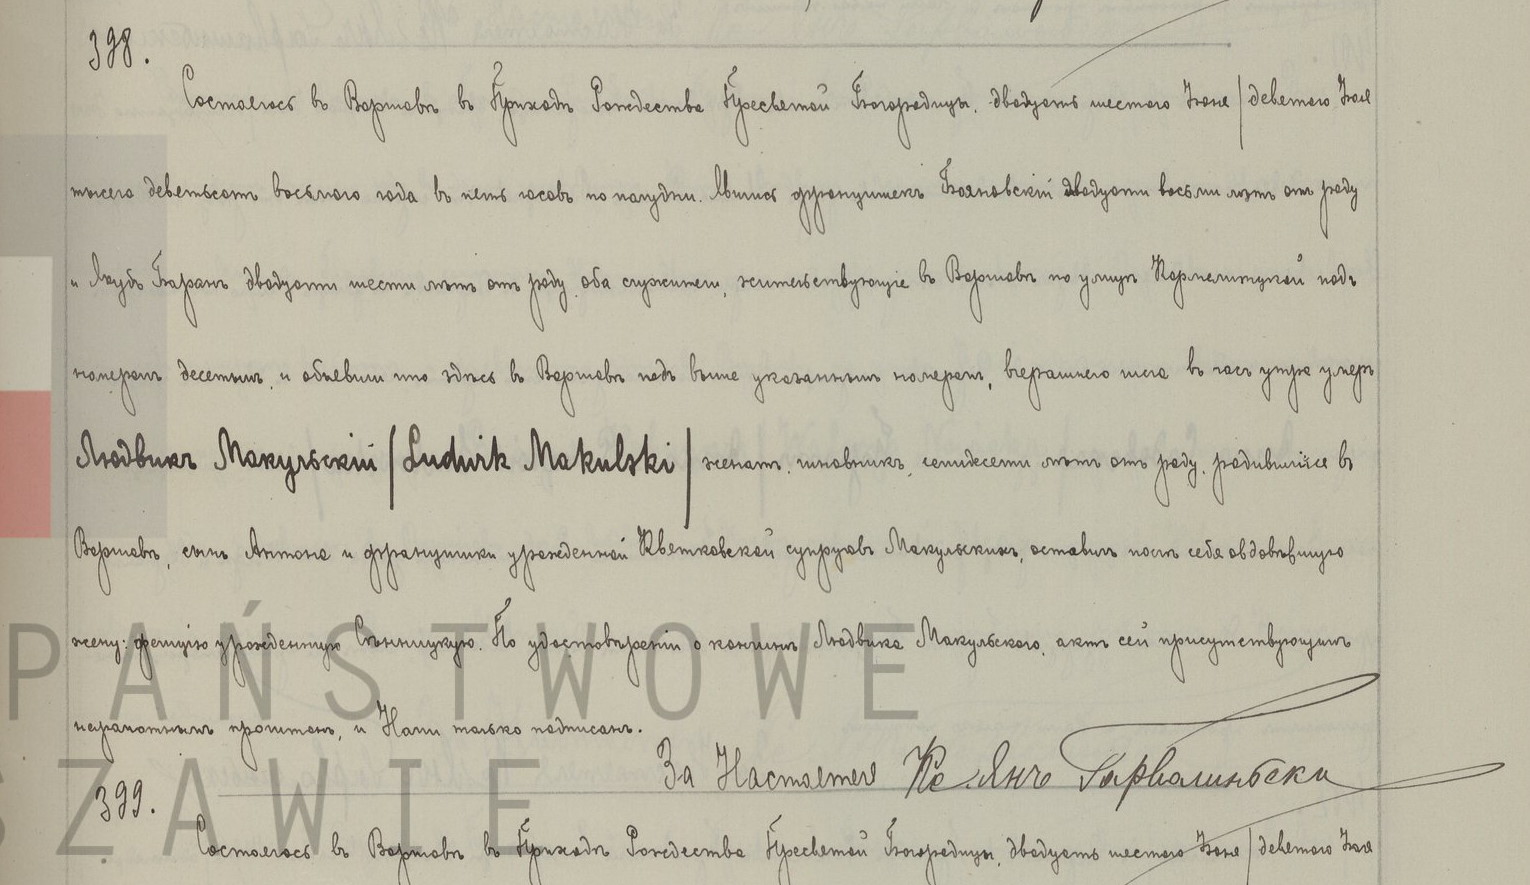 398.
Состоялось въ Варшавѣ въ Приходѣ Рождества Пресвятой Богородицы, двадцать шестого Іюня / девятого Іюля
тысяча девятьсотъ восьмого года въ пять часовъ по полудни. Явились Францишекъ Бояновскій двадцати восьми лѣтъ отъ роду
и Якубъ Баранъ двадцати шести лѣтъ отъ роду, оба служители, жительствующіе въ Варшавѣ по улицѣ Кармелитской подъ
номеромъ десятымъ, и объявили что здѣсь въ Варшавѣ подъ выше указаннымъ номеромъ, вчерашнего числа въ часъ утра умеръ
Людвикъ Макульскій / Ludwik Makulski / женатъ, чиновникъ, семидесяти лѣтъ отъ роду, родившійся въ
Варшавѣ, сынъ Антона и Францишки урожденной Квятковской супруговъ Макульскихъ, оставивъ послѣ себя овдовѣвшую
жену: Фелицію урожденную Сѣнницкую. По удостовѣреніи о кончинѣ Людвика Макульского, актъ сей присутствующимъ
неграмотнымъ прочитанъ, и Нами только подписанъ.
За Настоятеля Кс Янъ
399.
Состоялось въ Варшавѣ въ Приходѣ Рождества Пресвятой Богородицы, двадцать шестого Іюня / девятого Іюля
PAŃSTWOWE
SZAWIE